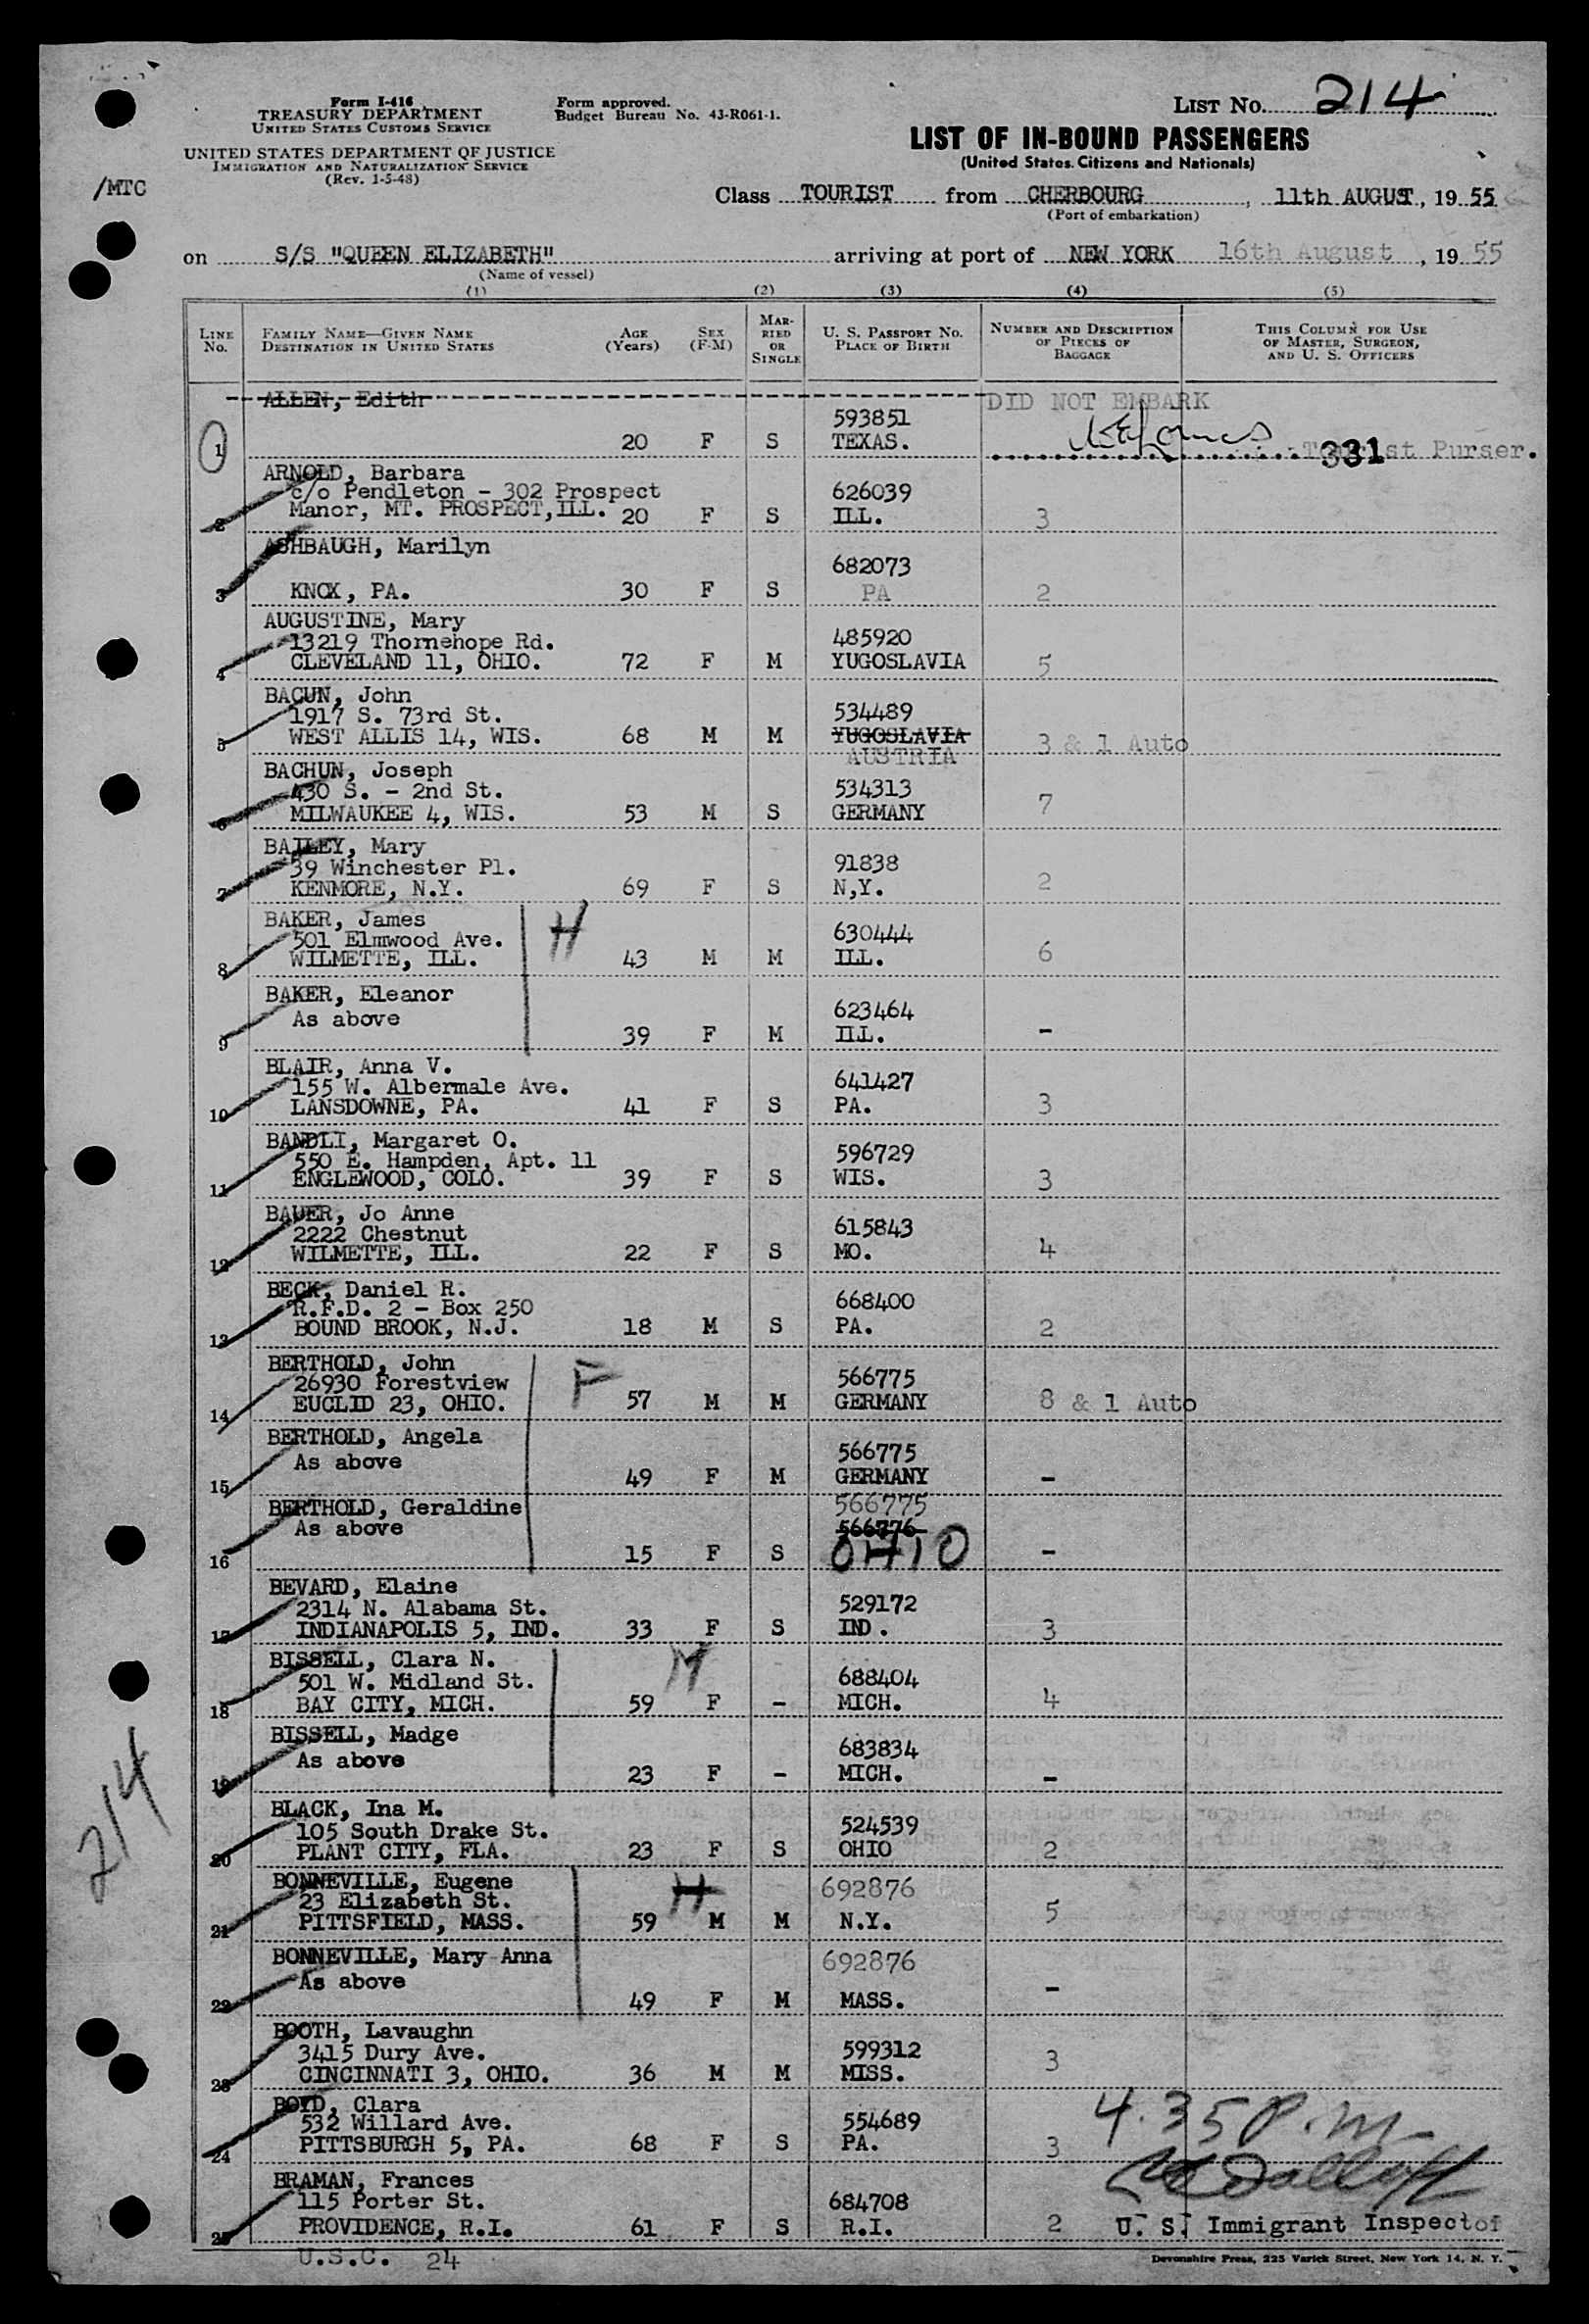 Form I-416
TREASURY DEPARTMENT
UNITED STATES CUSTOMS SERVICE
UNITED STATES DEPARTMENT OF JUSTICE
IMMIGRATION AND NATURALIZATION SERVICE
(Rev. 1-5-48)
/MTC
Form approved.
Budget Bureau No. 43-R061-1.
LIST No. 214
LIST OF IN-BOUND PASSENGERS
(United States Citizens and Nationals)
Class TOURIST from CHERBOURG, 11th AUGUST, 19 55
(Port of embarkation)
on S/S "QUEEN ELIZABETH" arriving at port of NEW YORK 16th August, 19 55
(Name of vessel)
(1) (2) (3) (4) (5)
LINE No. FAMILY NAME—GIVEN NAME DESTINATION IN UNITED STATES AGE (Years) SEX (F-M) MARRIED OR SINGLE U. S. PASSPORT NO. PLACE OF BIRTH NUMBER AND DESCRIPTION OF PIECES OF BAGGAGE THIS COLUMN FOR USE OF MASTER, SURGEON, AND U. S. OFFICERS
ALLEN, Edith DID NOT EMBARK
593851
1 20 F S TEXAS. 331 Tourist Purser.
ARNOLD, Barbara
c/o Pendleton - 302 Prospect 626039
2 Manor, MT. PROSPECT, ILL. 20 F S ILL. 3
ASHBAUGH, Marilyn
682073
3 KNOX, PA. 30 F S PA 2
AUGUSTINE, Mary
13219 Thornehope Rd. 485920
4 CLEVELAND 11, OHIO. 72 F M YUGOSLAVIA 5
BACUN, John
1917 S. 73rd St. 534489
5 WEST ALLIS 14, WIS. 68 M M YUGOSLAVIA 3 & 1 Auto
AUSTRIA
BACHUN, Joseph
430 S. - 2nd St. 534313
6 MILWAUKEE 4, WIS. 53 M S GERMANY 7
BAILEY, Mary
39 Winchester Pl. 91838
7 KENMORE, N.Y. 69 F S N,Y. 2
BAKER, James H
501 Elmwood Ave. 630444
8 WILMETTE, ILL. 43 M M ILL. 6
BAKER, Eleanor
As above 623464
9 39 F M ILL. -
BLAIR, Anna V.
155 W. Albermale Ave. 641427
10 LANSDOWNE, PA. 41 F S PA. 3
BANDLI, Margaret O.
550 E. Hampden, Apt. 11 596729
11 ENGLEWOOD, COLO. 39 F S WIS. 3
BAUER, Jo Anne
2222 Chestnut 615843
12 WILMETTE, ILL. 22 F S MO. 4
BECK, Daniel R.
R.F.D. 2 - Box 250 668400
13 BOUND BROOK, N.J. 18 M S PA. 2
BERTHOLD, John F
26930 Forestview 566775
14 EUCLID 23, OHIO. 57 M M GERMANY 8 & 1 Auto
BERTHOLD, Angela
As above 566775
15 49 F M GERMANY -
BERTHOLD, Geraldine 566775
As above 566776
16 15 F S OHIO -
BEVARD, Elaine
2314 N. Alabama St. 529172
17 INDIANAPOLIS 5, IND. 33 F S IND. 3
BISSELL, Clara N. M
501 W. Midland St. 688404
18 BAY CITY, MICH. 59 F - MICH. 4
BISSELL, Madge
As above 683834
19 23 F - MICH. -
BLACK, Ina M.
105 South Drake St. 524539
20 PLANT CITY, FLA. 23 F S OHIO 2
BONNEVILLE, Eugene H 692876
23 Elizabeth St.
21 PITTSFIELD, MASS. 59 M M N.Y. 5
BONNEVILLE, Mary Anna 692876
As above
22 49 F M MASS. -
BOOTH, Lavaughn
3415 Dury Ave. 599312
23 CINCINNATI 3, OHIO. 36 M M MISS. 3
BOYD, Clara 4.35 P.m
532 Willard Ave. 554689
24 PITTSBURGH 5, PA. 68 F S PA. 3
BRAMAN, Frances
115 Porter St. 684708
25 PROVIDENCE, R.I. 61 F S R.I. 2 U. S. Immigrant Inspector
U.S.C. 24
Devonshire Press, 225 Varick Street, New York 14, N. Y.
214